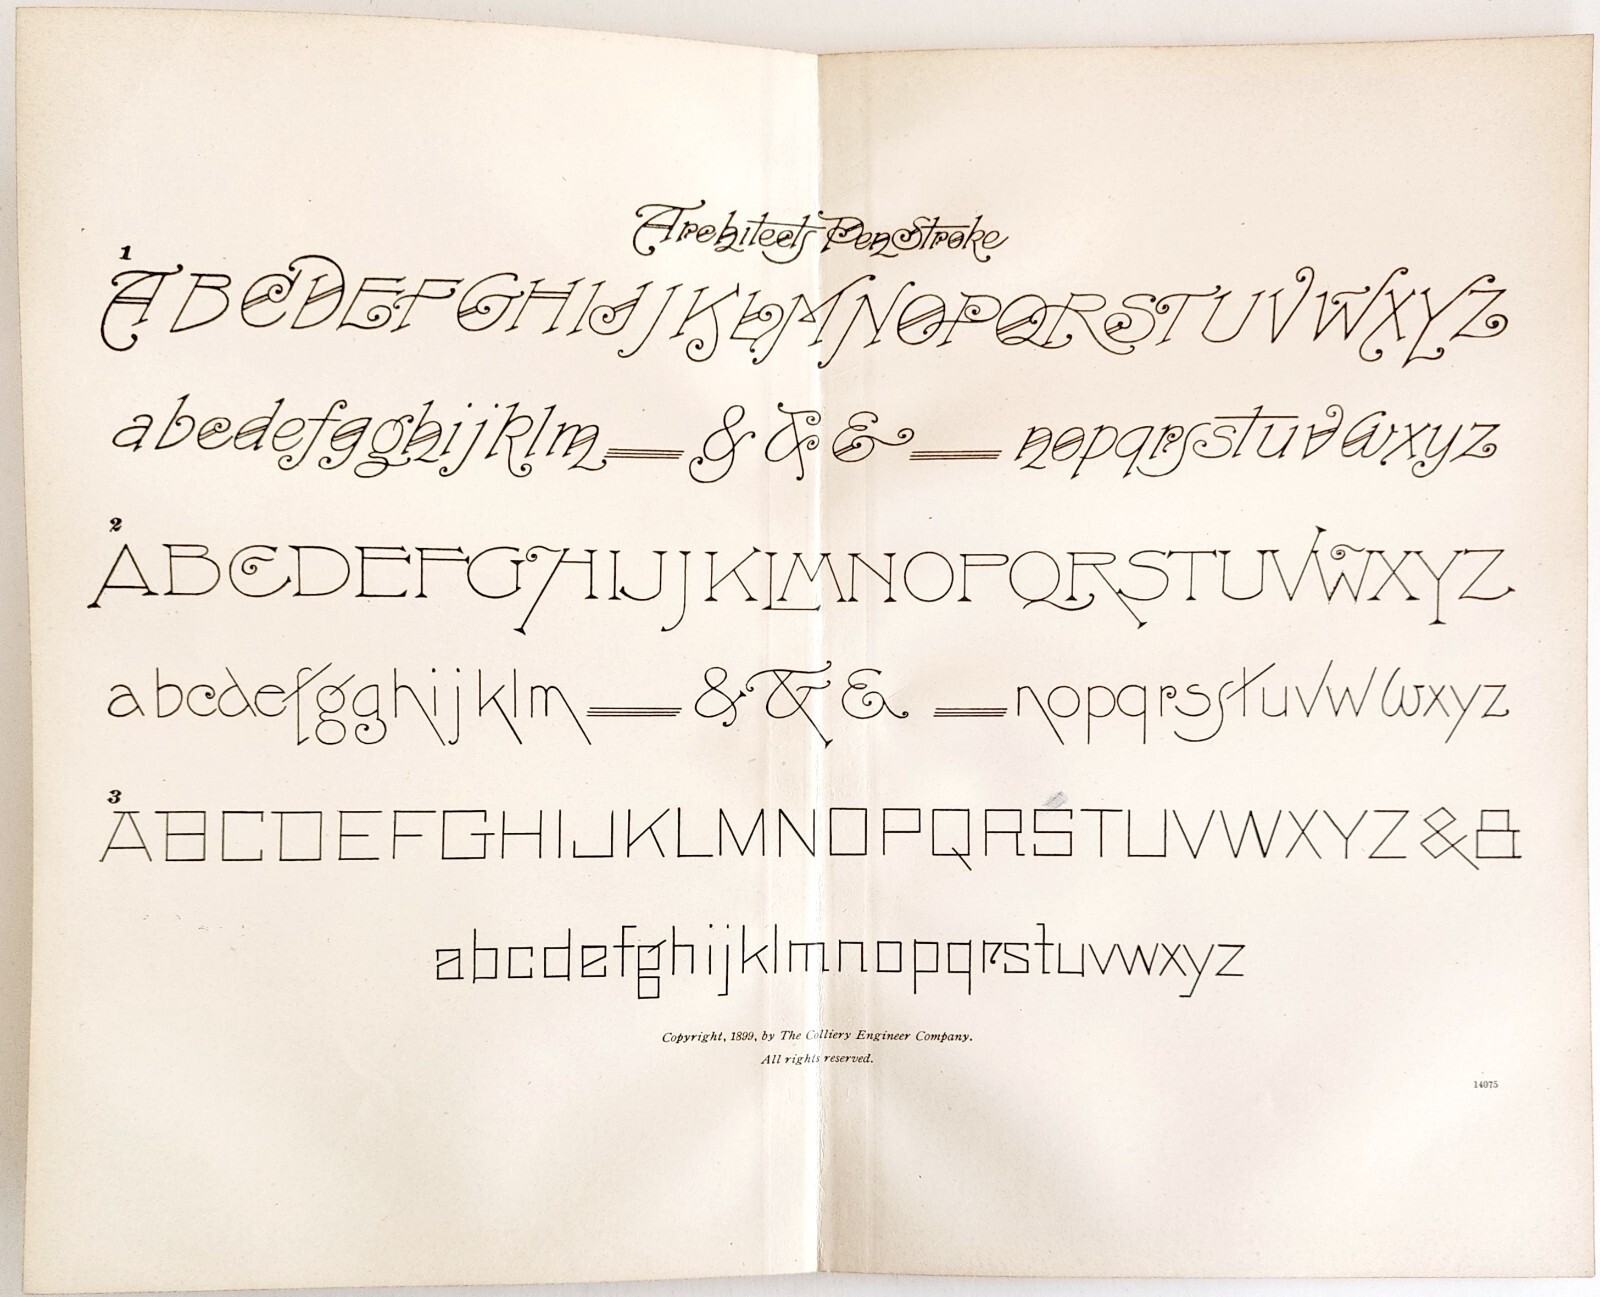 Architects Pen Stroke
1
ABCDEFGHIJJKLMNOPQRSTUVWXYZ
abcdefgghijklm & & & nopqrsstuvwxyz
2
ABCDEFGHIJJKLMNOPQRSTUVWXYZ
abcdefgghijklm & & & nopqrsstuvwwxyz
3
ABCDEFGHIJKLMNOPQRSTUVWXYZ&&
abcdefghijklmnopqrstuvwxyz
Copyright, 1899, by The Colliery Engineer Company.
All rights reserved.
14075